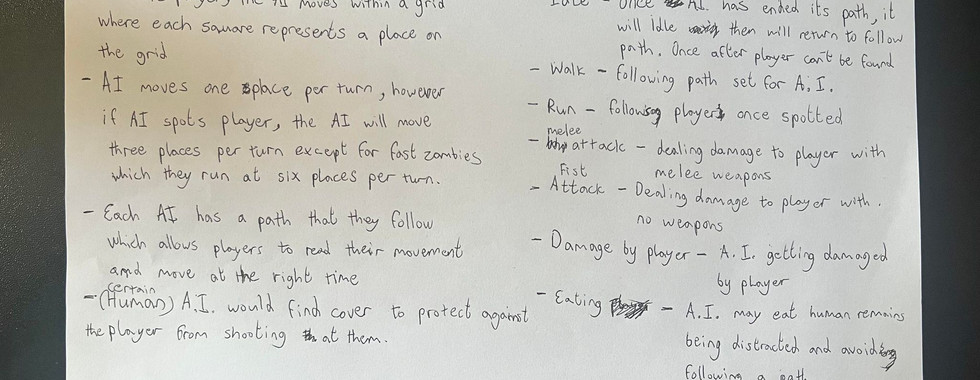 the AI moves within a grid
where each square represents a place on
the grid
- AI moves one space per turn, however
if AI spots player, the AI will move
three places per turn except for fast zombies
which they run at six places per turn.
- Each AI has a path that they follow
which allows players to read their movement
and move at the right time
certain
- (Human) A.I. would find cover to protect against
the player from shooting at them.
- once AI. has ended its path, it
will idle then will return to follow
path. Once after player can't be found
- Walk - following path set for A.I.
- Run - following player once spotted
melee
- attack - dealing damage to player with
melee weapons
Fist
- Attack - Dealing damage to player with.
no weapons
- Damage by player - A.I. getting damaged
by player
- Eating - A.I. may eat human remains
being distracted and avoiding
following a path